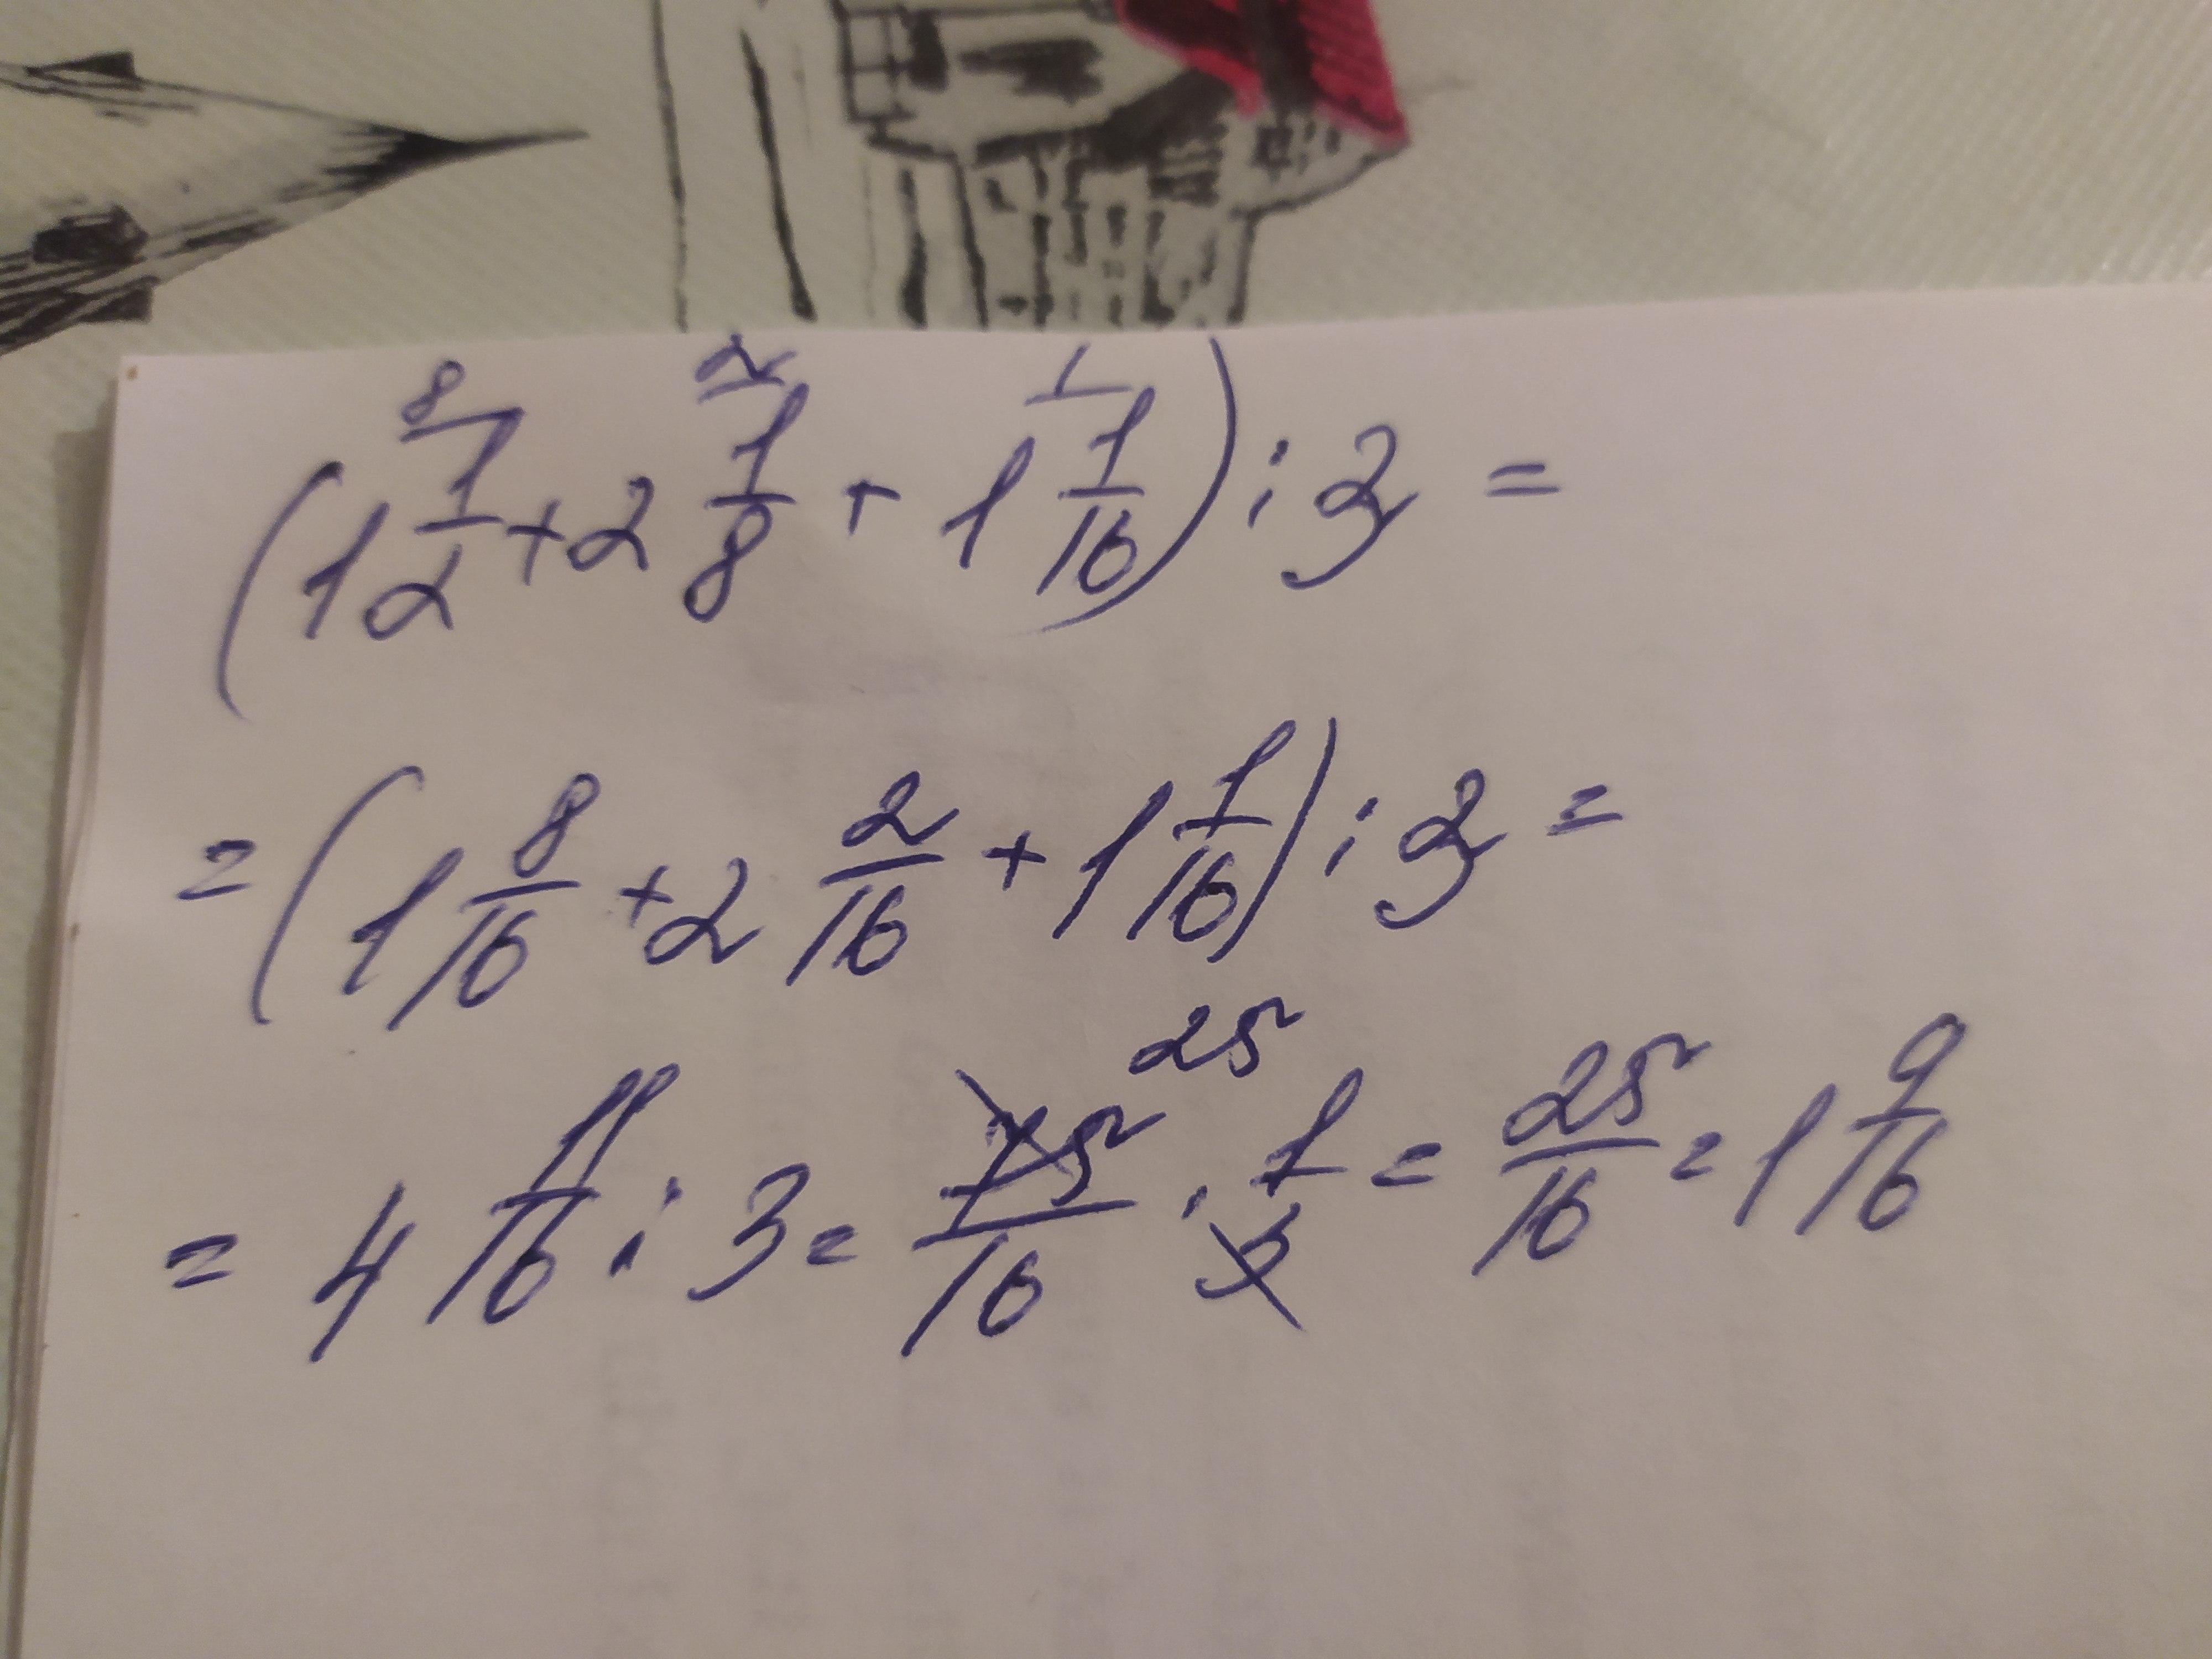 (1 1/2 + 2 1/8 + 1 1/16) : 3 =
8 2 1
= (1 8/16 + 2 2/16 + 1 1/16) : 3 =
25
= 4 11/16 : 3 = 75/16 · 1/3 = 25/16 = 1 9/16